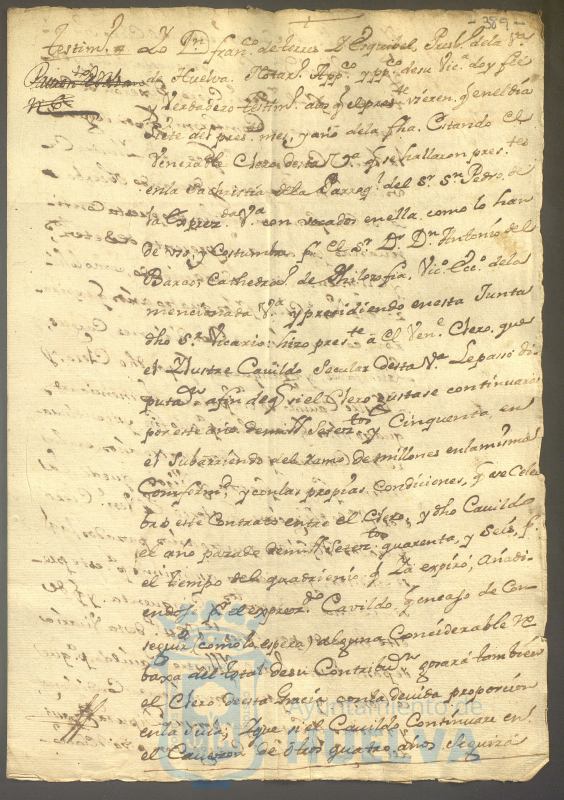 - 389 -
Testim.º Yo Dn. Fran.co de
de Huelva. Notar.º App.co y pp.co de su Vic.a doy fee
y Verdadero testim.º alos q.e el pres.te vieren q.e en el dia
siete del pres.te mes, y año dela fha. estando el
Venerable Clero desta V.a q.e se hallaron pres.tes
en la Sachristia dela Parroq.l del S.r S.n Pedro de
la exprez.da V.a convocados en ella como lo han
de uso, y costumbre p.r el S.r D.r D.n Antonio del
Barco, Cathedra.o de Philosofia, Vic.o Ecc.o dela
mencionada V.a y presidiendo en esta Junta
dho S.r Vicario: hizo pres.te a el Ven.e Clero, que
el Illustre Cavildo Secular desta V.a le paso di
puta.on afin de q.e si el Clero gustase continuar
por este año de mill Setez.tos y Cinquenta, en
el Subarriendo del Ramo de millones en la misma
Conform.d y con las propias condiciones, q.e se cele
bro este Contrato entre el Clero, y dho Cavildo
el año pasado de mill Setez.tos quarenta, y seis, p.r
el tiempo del quadrienio q.e ya expiró, Añadi-
endose p.r el exprez.do Cavildo, q.e en caso de Con
seguir (como lo espera) alguna Considerable re
baxa del total de su Contribu.on gozará tambien
el Clero desta Gracia con la devida proporcion
en la Suia, y que si el Cavildo Continuare en
el Cavezon de otros quatro años seguirá
Ayuntamiento de
HUELVA